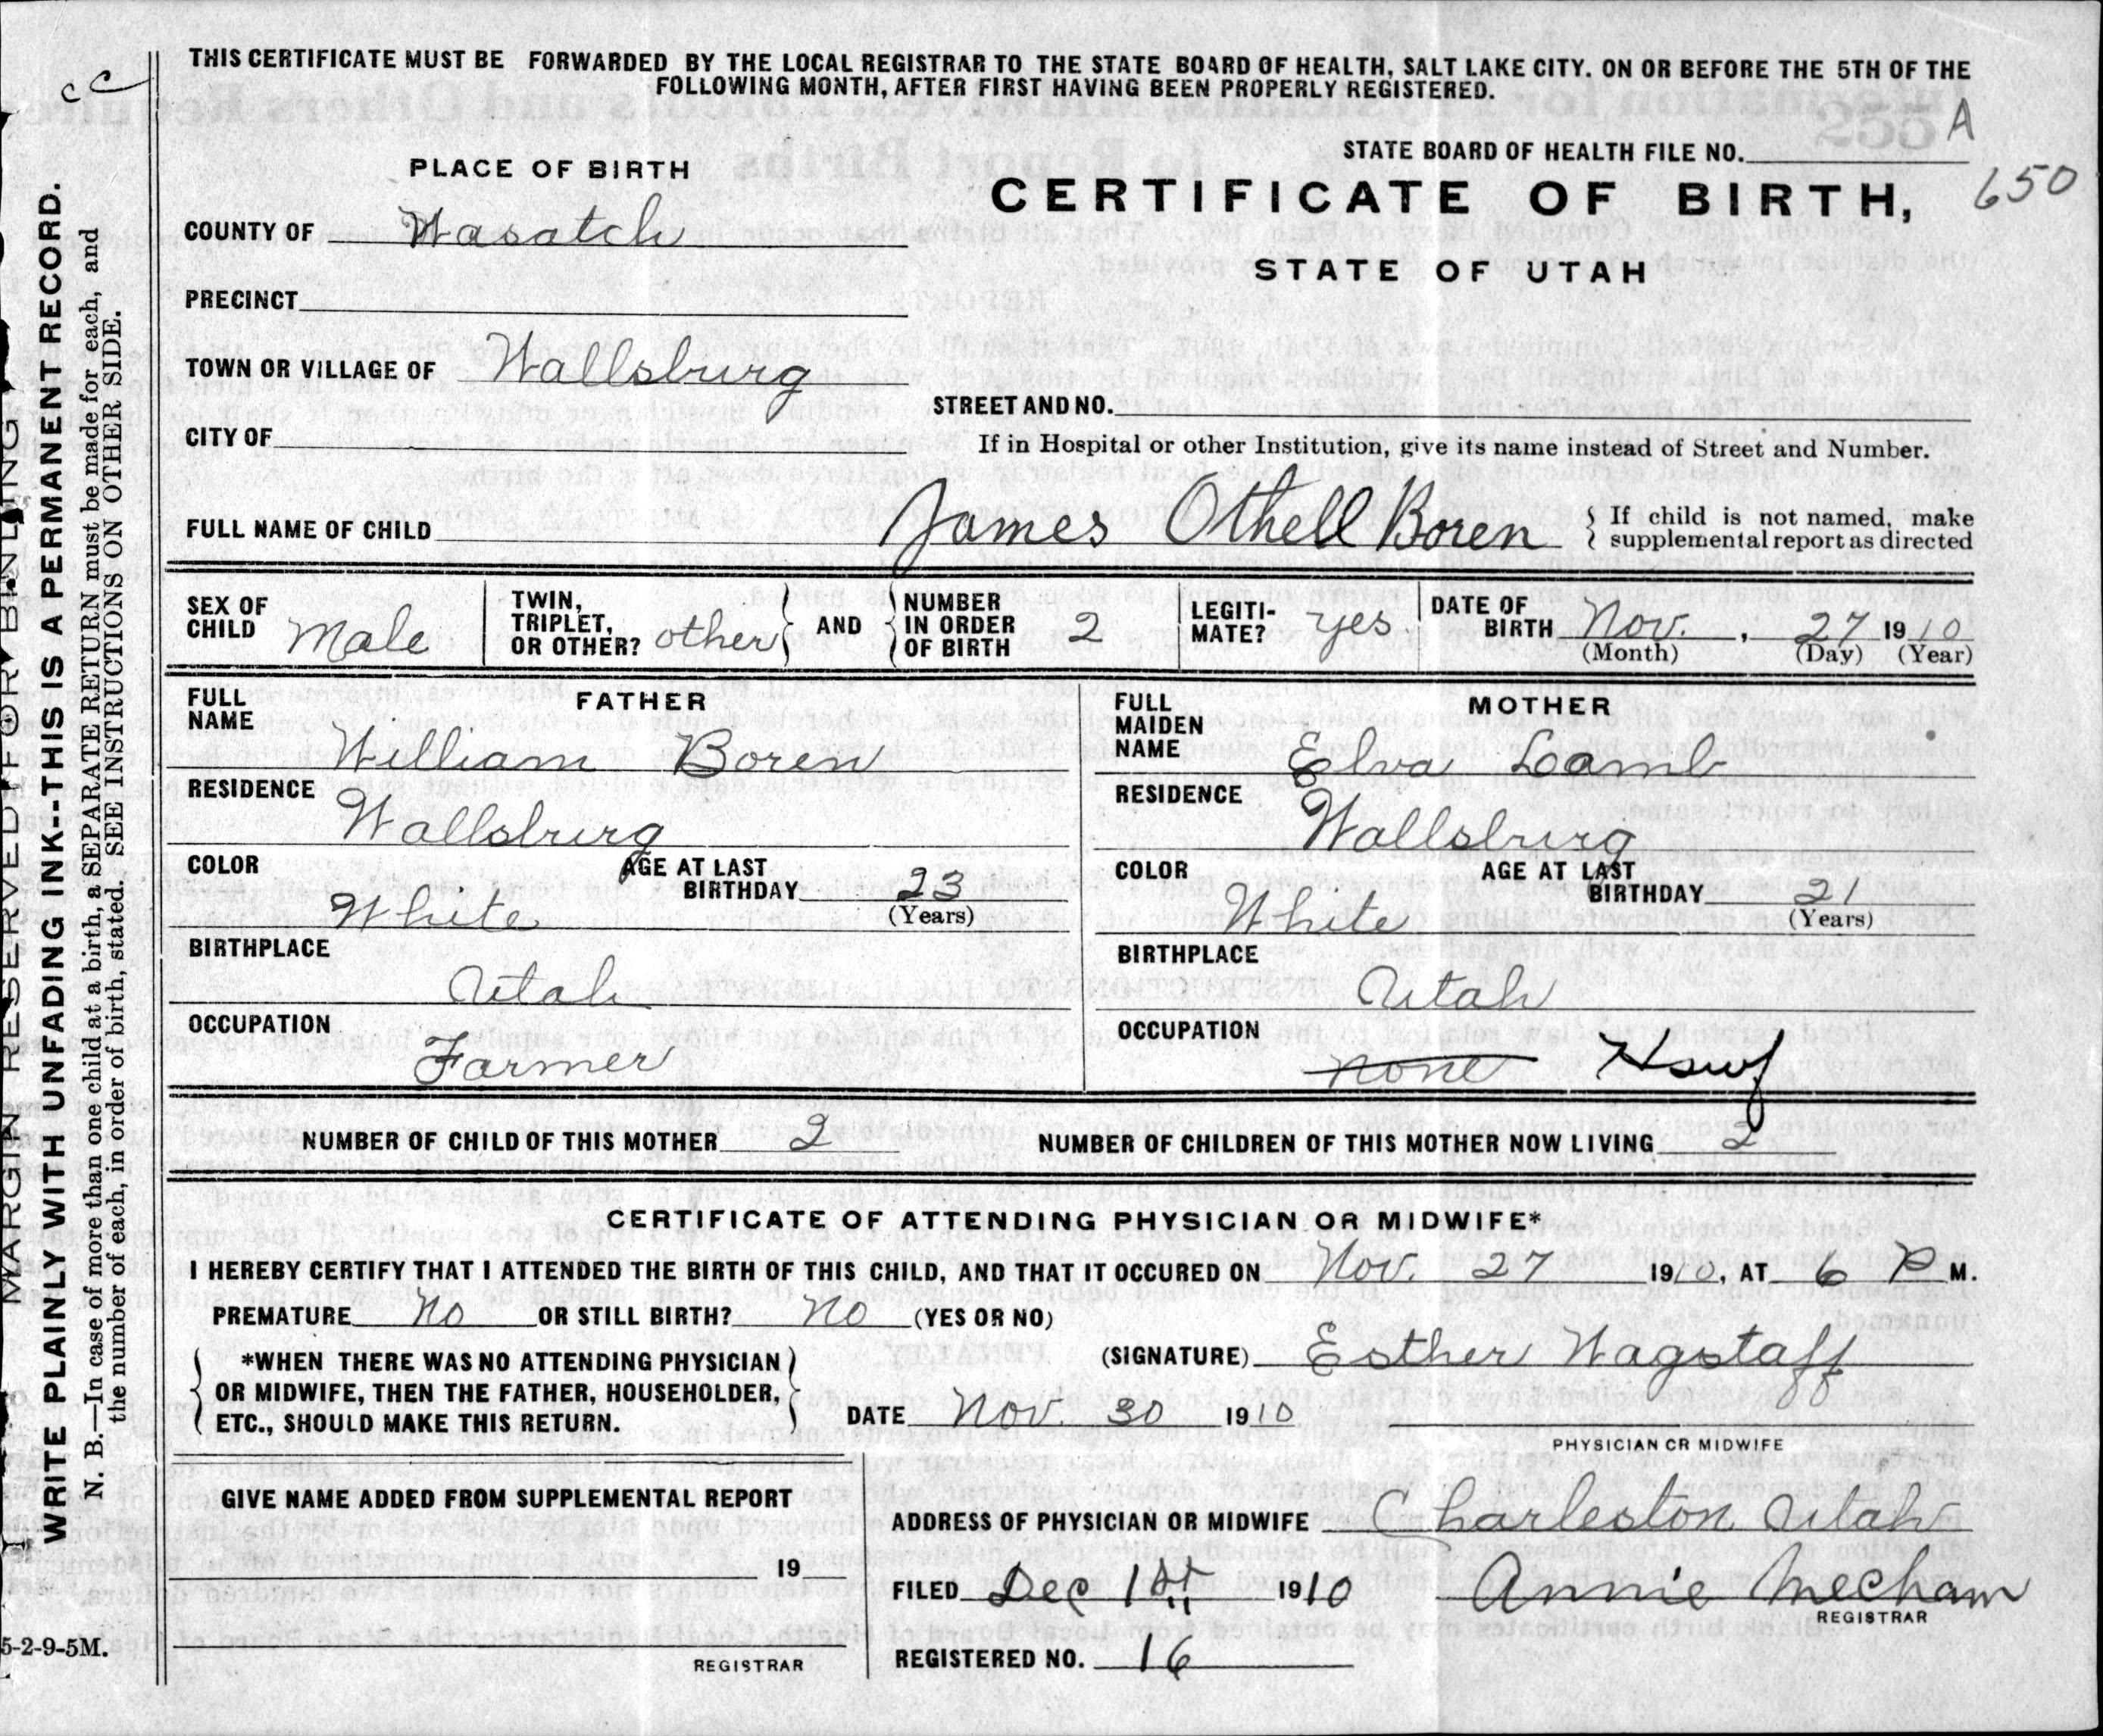 THIS CERTIFICATE MUST BE FORWARDED BY THE LOCAL REGISTRAR TO THE STATE BOARD OF HEALTH, SALT LAKE CITY. ON OR BEFORE THE 5TH OF THE
FOLLOWING MONTH, AFTER FIRST HAVING BEEN PROPERLY REGISTERED.
cc
A
STATE BOARD OF HEALTH FILE NO.
650
PLACE OF BIRTH
CERTIFICATE OF BIRTH,
STATE OF UTAH
COUNTY OF Wasatch
PRECINCT
TOWN OR VILLAGE OF Wallsburg
STREET AND NO.
CITY OF
If in Hospital or other Institution, give its name instead of Street and Number.
FULL NAME OF CHILD James Othell Boren { If child is not named, make
supplemental report as directed
SEX OF CHILD Male
TWIN, TRIPLET, OR OTHER? other } AND { NUMBER IN ORDER OF BIRTH 2
LEGITI-MATE? yes
DATE OF BIRTH Nov. , 27 1910
(Month) (Day) (Year)
FATHER
FULL NAME William Boren
RESIDENCE Wallsburg
COLOR White
AGE AT LAST BIRTHDAY 23
(Years)
BIRTHPLACE Utah
OCCUPATION Farmer
MOTHER
FULL MAIDEN NAME Elva Lamb
RESIDENCE Wallsburg
COLOR White
AGE AT LAST BIRTHDAY 21
(Years)
BIRTHPLACE Utah
OCCUPATION none Hswf
NUMBER OF CHILD OF THIS MOTHER 2 NUMBER OF CHILDREN OF THIS MOTHER NOW LIVING 2
CERTIFICATE OF ATTENDING PHYSICIAN OR MIDWIFE*
I HEREBY CERTIFY THAT I ATTENDED THE BIRTH OF THIS CHILD, AND THAT IT OCCURED ON Nov. 27 1910, AT 6 P M.
PREMATURE No OR STILL BIRTH? No (YES OR NO)
{ *WHEN THERE WAS NO ATTENDING PHYSICIAN
OR MIDWIFE, THEN THE FATHER, HOUSEHOLDER,
ETC., SHOULD MAKE THIS RETURN. }
(SIGNATURE) Esther Wagstaff
DATE Nov. 30 1910
PHYSICIAN OR MIDWIFE
GIVE NAME ADDED FROM SUPPLEMENTAL REPORT
19
REGISTRAR
ADDRESS OF PHYSICIAN OR MIDWIFE Charleston Utah
FILED Dec 1st 1910 Annie Mecham
REGISTRAR
REGISTERED NO. 16
MARGIN RESERVED FOR BINDING
WRITE PLAINLY WITH UNFADING INK--THIS IS A PERMANENT RECORD.
N. B.—In case of more than one child at a birth, a SEPARATE RETURN must be made for each, and
the number of each, in order of birth, stated. SEE INSTRUCTIONS ON OTHER SIDE.
5-2-9-5M.